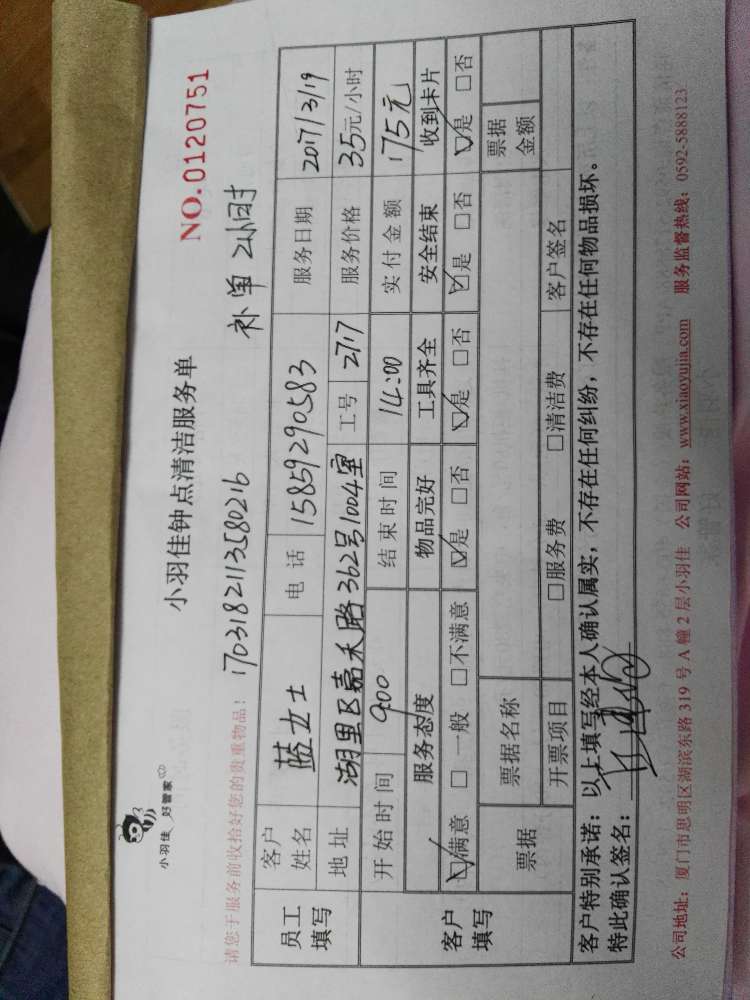 小羽佳 好管家
小羽佳钟点清洁服务单
NO.0120751
请您于服务前收拾好您的贵重物品!
1703182113580216
补单 2小时
员工填写
客户姓名 蓝女士 电话 15859290583 服务日期 2017/3/19
地址 湖里区嘉禾路362号1004室 工号 2717 服务价格 35元/小时
客户填写
开始时间 9:00 结束时间 14:00 实付金额 175元
服务态度 物品完好 工具齐全 安全结束 收到卡片
☑满意 □一般 □不满意 ☑是 □否 ☑是 □否 ☑是 □否 ☑是 □否
票据 票据名称 票据金额
开票项目 □服务费 □清洁费 客户签名
客户特别承诺:以上填写经本人确认属实,不存在任何纠纷,不存在任何物品损坏。
特此确认签名:
公司地址:厦门市思明区湖滨东路319号A幢2层小羽佳 公司网站:www.xiaoyujia.com 服务监督热线:0592-5888123